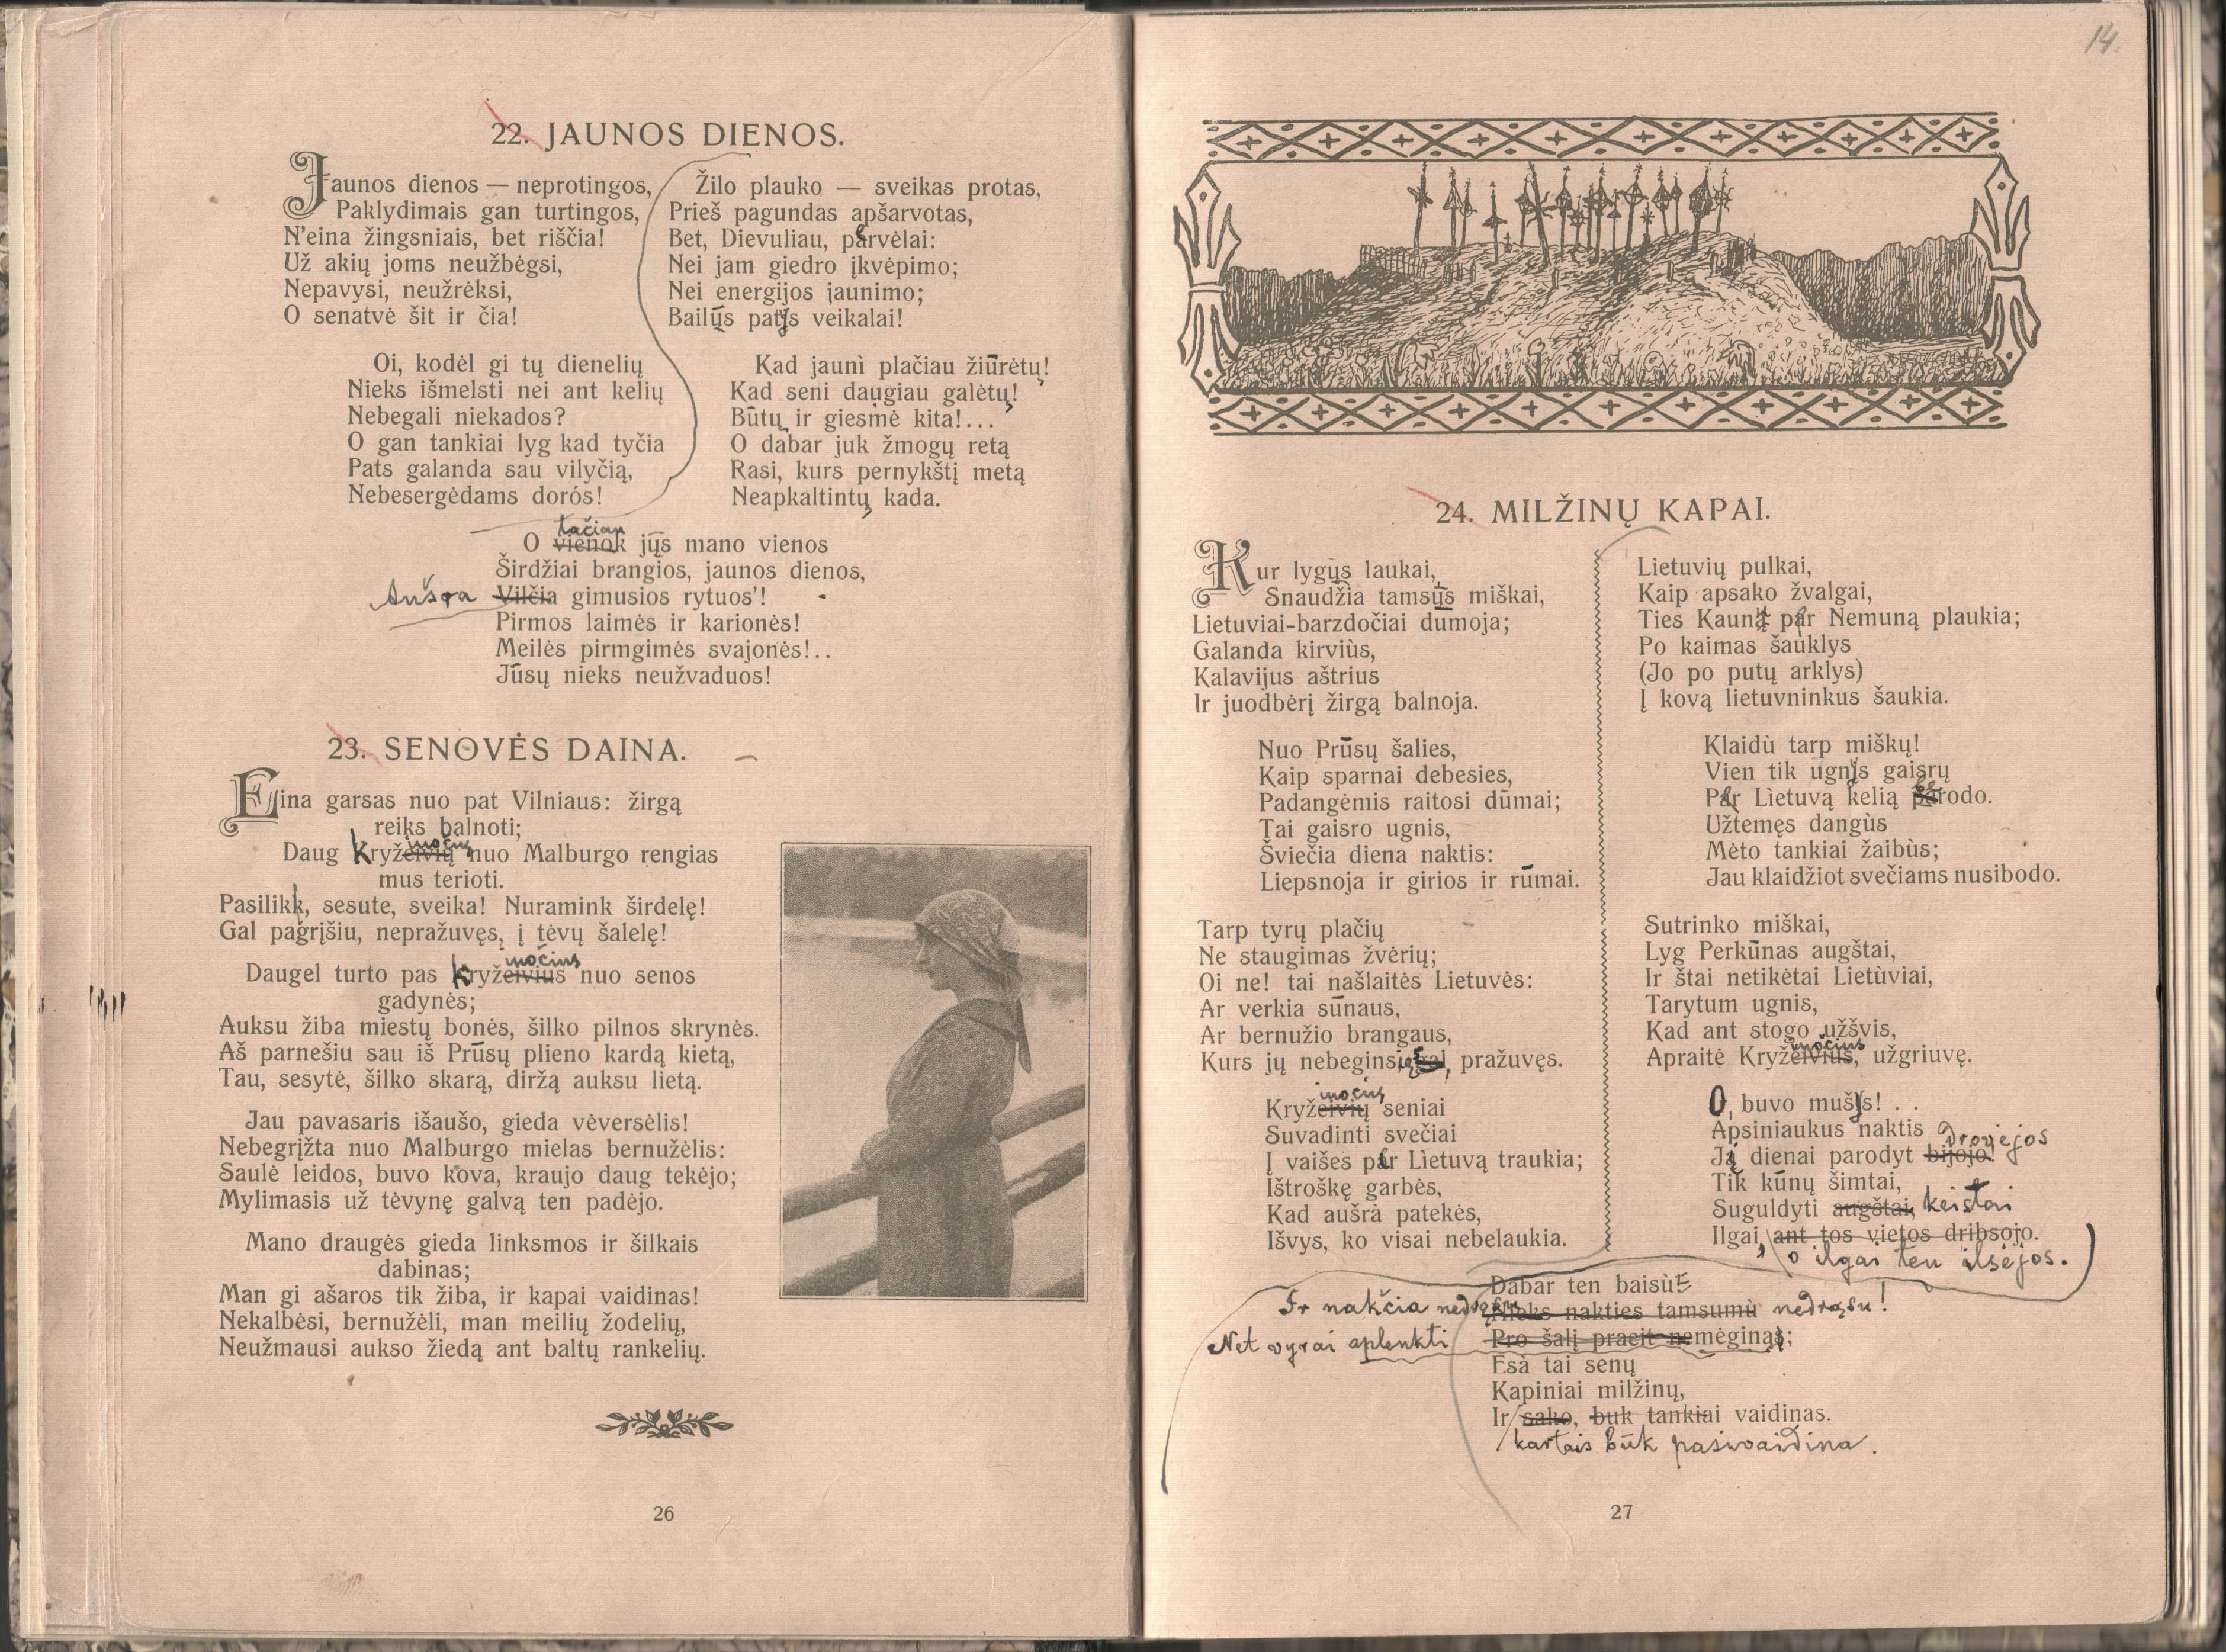 22. JAUNOS DIENOS.
Jaunos dienos — neprotingos,
Paklydimais gan turtingos,
N'eina žingsniais, bet riščia!
Už akių joms neužbėgsi,
Nepavysi, neužrėksi,
O senatvė šit ir čia!
Oi, kodėl gi tų dienelių
Nieks išmelsti nei ant kelių
Nebegali niekados?
O gan tankiai lyg kad tyčia
Pats galanda sau vilyčią,
Nebesergėdams dorós!
Žilo plauko — sveikas protas,
Prieš pagundas apšarvotas,
Bet, Dievuliau, pervėlai:
Nei jam giedro įkvėpimo;
Nei energijos jaunimo;
Bailųs patys veikalai!
Kad jauni plačiau žiūrėtų!
Kad seni daugiau galėtų!
Būtų ir giesmė kita!...
O dabar juk žmogų retą
Rasi, kurs pernykštį metą
Neapkaltintų kada.
tačiau
O vienok jųs mano vienos
Širdžiai brangios, jaunos dienos,
Aušra Vilčia gimusios rytuos'!
Pirmos laimės ir karionės!
Meilės pirmgimės svajonės!..
Jūsų nieks neužvaduos!
23. SENOVĖS DAINA.
Eina garsas nuo pat Vilniaus: žirgą
reiks balnoti;
močių
Daug Kryžeivių nuo Malburgo rengias
mus terioti.
Pasilik, sesute, sveika! Nuramink širdelę!
Gal pagrįšiu, nepražuvęs, į tėvų šalelę!
močius
Daugel turto pas Kryžeivius nuo senos
gadynės;
Auksu žiba miestų bonės, šilko pilnos skrynės.
Aš parnešiu sau iš Prūsų plieno kardą kietą,
Tau, sesytė, šilko skarą, diržą auksu lietą.
Jau pavasaris išaušo, gieda vėversėlis!
Nebegrįžta nuo Malburgo mielas bernužėlis:
Saulė leidos, buvo kova, kraujo daug tekėjo;
Mylimasis už tėvynę galvą ten padėjo.
Mano draugės gieda linksmos ir šilkais
dabinas;
Man gi ašaros tik žiba, ir kapai vaidinas!
Nekalbėsi, bernužėli, man meilių žodelių,
Neužmausi aukso žiedą ant baltų rankelių.
26
14.
24. MILŽINŲ KAPAI.
Kur lygųs laukai,
Snaudžia tamsųs miškai,
Lietuviai-barzdočiai dūmoja;
Galanda kirviùs,
Kalavijus aštrius
Ir juodbėrį žirgą balnoja.
Nuo Prūsų šalies,
Kaip sparnai debesies,
Padangėmis raitosi dūmai;
Tai gaisro ugnis,
Šviečia diena naktis:
Liepsnoja ir girios ir rūmai.
Tarp tyrų plačių
Ne staugimas žvėrių;
Oi ne! tai našlaitės Lietuvės:
Ar verkia sūnaus,
Ar bernužio brangaus,
Kurs jų nebegins, pražuvęs.
močius
Kryžeivių seniai
Suvadinti svečiai
Į vaišes per Lietuvą traukia;
Ištroškę garbės,
Kad aušrà patekės,
Išvys, ko visai nebelaukia.
Lietuvių pulkai,
Kaip apsako žvalgai,
Ties Kaunu per Nemuną plaukia;
Po kaimas šauklys
(Jo po putų arklys)
Į kovą lietuvninkus šaukia.
Klaidù tarp miškų!
Vien tik ugnys gaisrų
Per Lietuvą kelią parodo.
Užtemęs dangùs
Mėto tankiai žaibùs;
Jau klaidžiot svečiams nusibodo.
Sutrinko miškai,
Lyg Perkūnas augštai,
Ir štai netikėtai Lietùviai,
Tarytum ugnis,
Kad ant stogo užšvis,
močius
Apraitė Kryžeivius, užgriuvę.
O, buvo mušys! . .
Apsiniaukus naktis
drovėjos
Ją dienai parodyt bijojo!
Tik kūnų šimtai,
Suguldyti augštai, keistai
Ilgai, ant tos vietos dribsojo.
o ilgai ten ilsėjos.
Dabar ten baisù
Ir nakčia Nieks nakties tamsumù nedrąsu!
Net vyrai aplenkti Pro šalį praeit nemėgina;
Esà tai senų
Kapiniai milžinų,
Ir sako, buk tankiai vaidinas.
kartais būk pasivaidina.
27